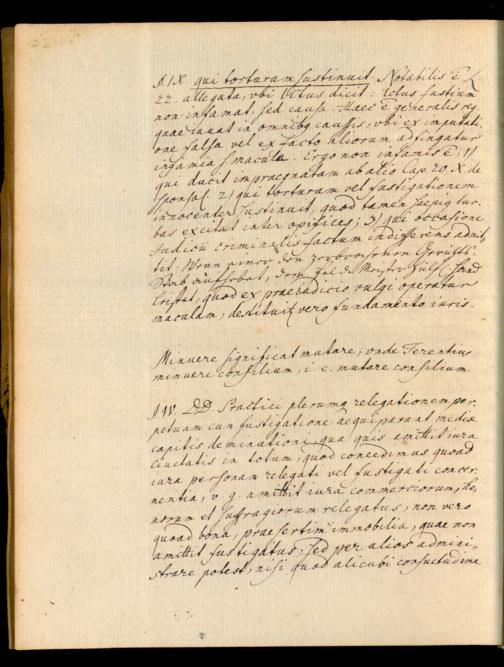 §. IX. qui torturam sustinuit. Notabilis ē L.
22. allegata, vbi Ictus dicit: Ictus fustium
non infamat, sed causa. Haec ē generalis reg.
quae iuuat in omnibq caussis, vbi ex imputati,
one falsa vel ex facto aliorum adfingatur
infamia s. macula. Ergo non infamis ē, 1)
qui ducit impraegnatam ab alio Cap. 20. X. de
sponsal. 2) qui torturam vel fustigationem
innocenter sustinuit, quod tamen saepiq tur,
bas excitat inter opifices; 3) qui occasione
Iudicii criminalis factum indifferens admit,
tit: Wenn einer den
, quod ex praeiudicio vulgi operatur
maculam, destituit vero fundamento iuris.
Minuere significat mutare; vnde Terentius:
minuere consilium, i. e. mutare consilium.
§. IV. DD. Practici plerumq relegationem per,
petuam cum fustigatione aequiparant mediae
capitis deminutioni, qua quis amittit iura
ciuitatis in totum; quod concedimus quoad
iura personam relegati vel fustigati concer,
nentia, v. g. amittit iura commerciorum, ho,
norum et suffragiorum relegatus, non vero
quoad bona, praesertim immobilia, quae non
amittit fustigatus, sed per alios admini,
strare potest, nisi quod alicubi consuetudine